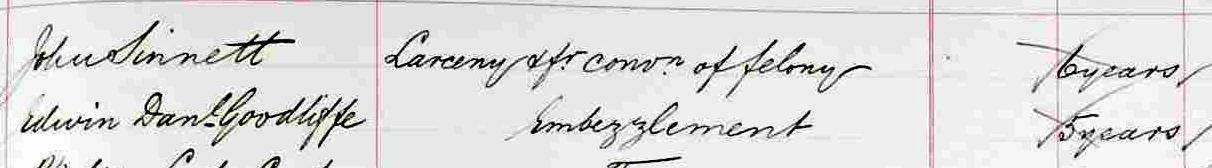 John Sinnett Larceny & fr. convn. of felony 6 years
Edwin Danl. Goodliffe Embezzlement 5 years